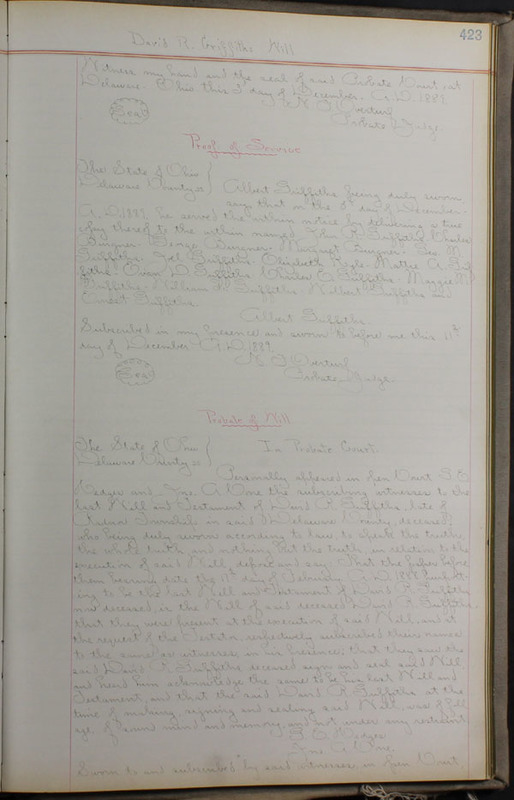 423
David R. Griffiths Will
Witness my hand and the seal of said Probate Court at
Delaware, Ohio this 3 day of December A.D. 1889.
Seal
Probate Judge.
Proof of Service
The State of Ohio
Delaware County ss
Albert Griffiths being duly sworn
says that on the 3 day of December
A.D. 1889, he served the within notice by delivering a true
copy thereof to the within named John R. Griffiths, Charles
George Margaret Geo. M.
Griffiths Griffiths Elizabeth Mattie A. Grif
fiths Owen D. Griffiths Charles E. Griffiths Maggie M.
Griffiths William H. Griffiths Griffiths and
Ernest Griffiths.
Albert Griffiths.
Subscribed in my presence and sworn to before me this 11th
day of December A.D. 1889.
Seal
Probate Judge.
Probate of Will
The State of Ohio
Delaware County ss
In Probate Court.
Personally appeared in open Court S. E.
Hedges and Jno. A. Cone the subscribing witnesses to the
last Will and Testament of David R. Griffiths, late of
Township in said Delaware County, deceased,
who being duly sworn according to law, to speak the truth,
the whole truth and nothing but the truth, in relation to the
execution of said Will, depose and say: That the paper before
them bearing date the day of February A.D. 1888 purport-
ing to be the last Will and Testament of David R. Griffiths
now deceased, is the Will of said deceased David R. Griffiths,
that they were present at the execution of said Will, and at
the request of the Testator, respectively subscribed their names
to the same as witnesses in his presence; that they saw the
said David R. Griffiths deceased sign and seal said Will
and heard him acknowledge the same to be his last Will and
Testament, and that the said David R. Griffiths at the
time of making, signing and sealing said Will, was of full
age, of sound mind and memory, and not under any restraint.
S. E. Hedges
Jno. A. Cone.
Sworn to and subscribed by said witnesses in open Court